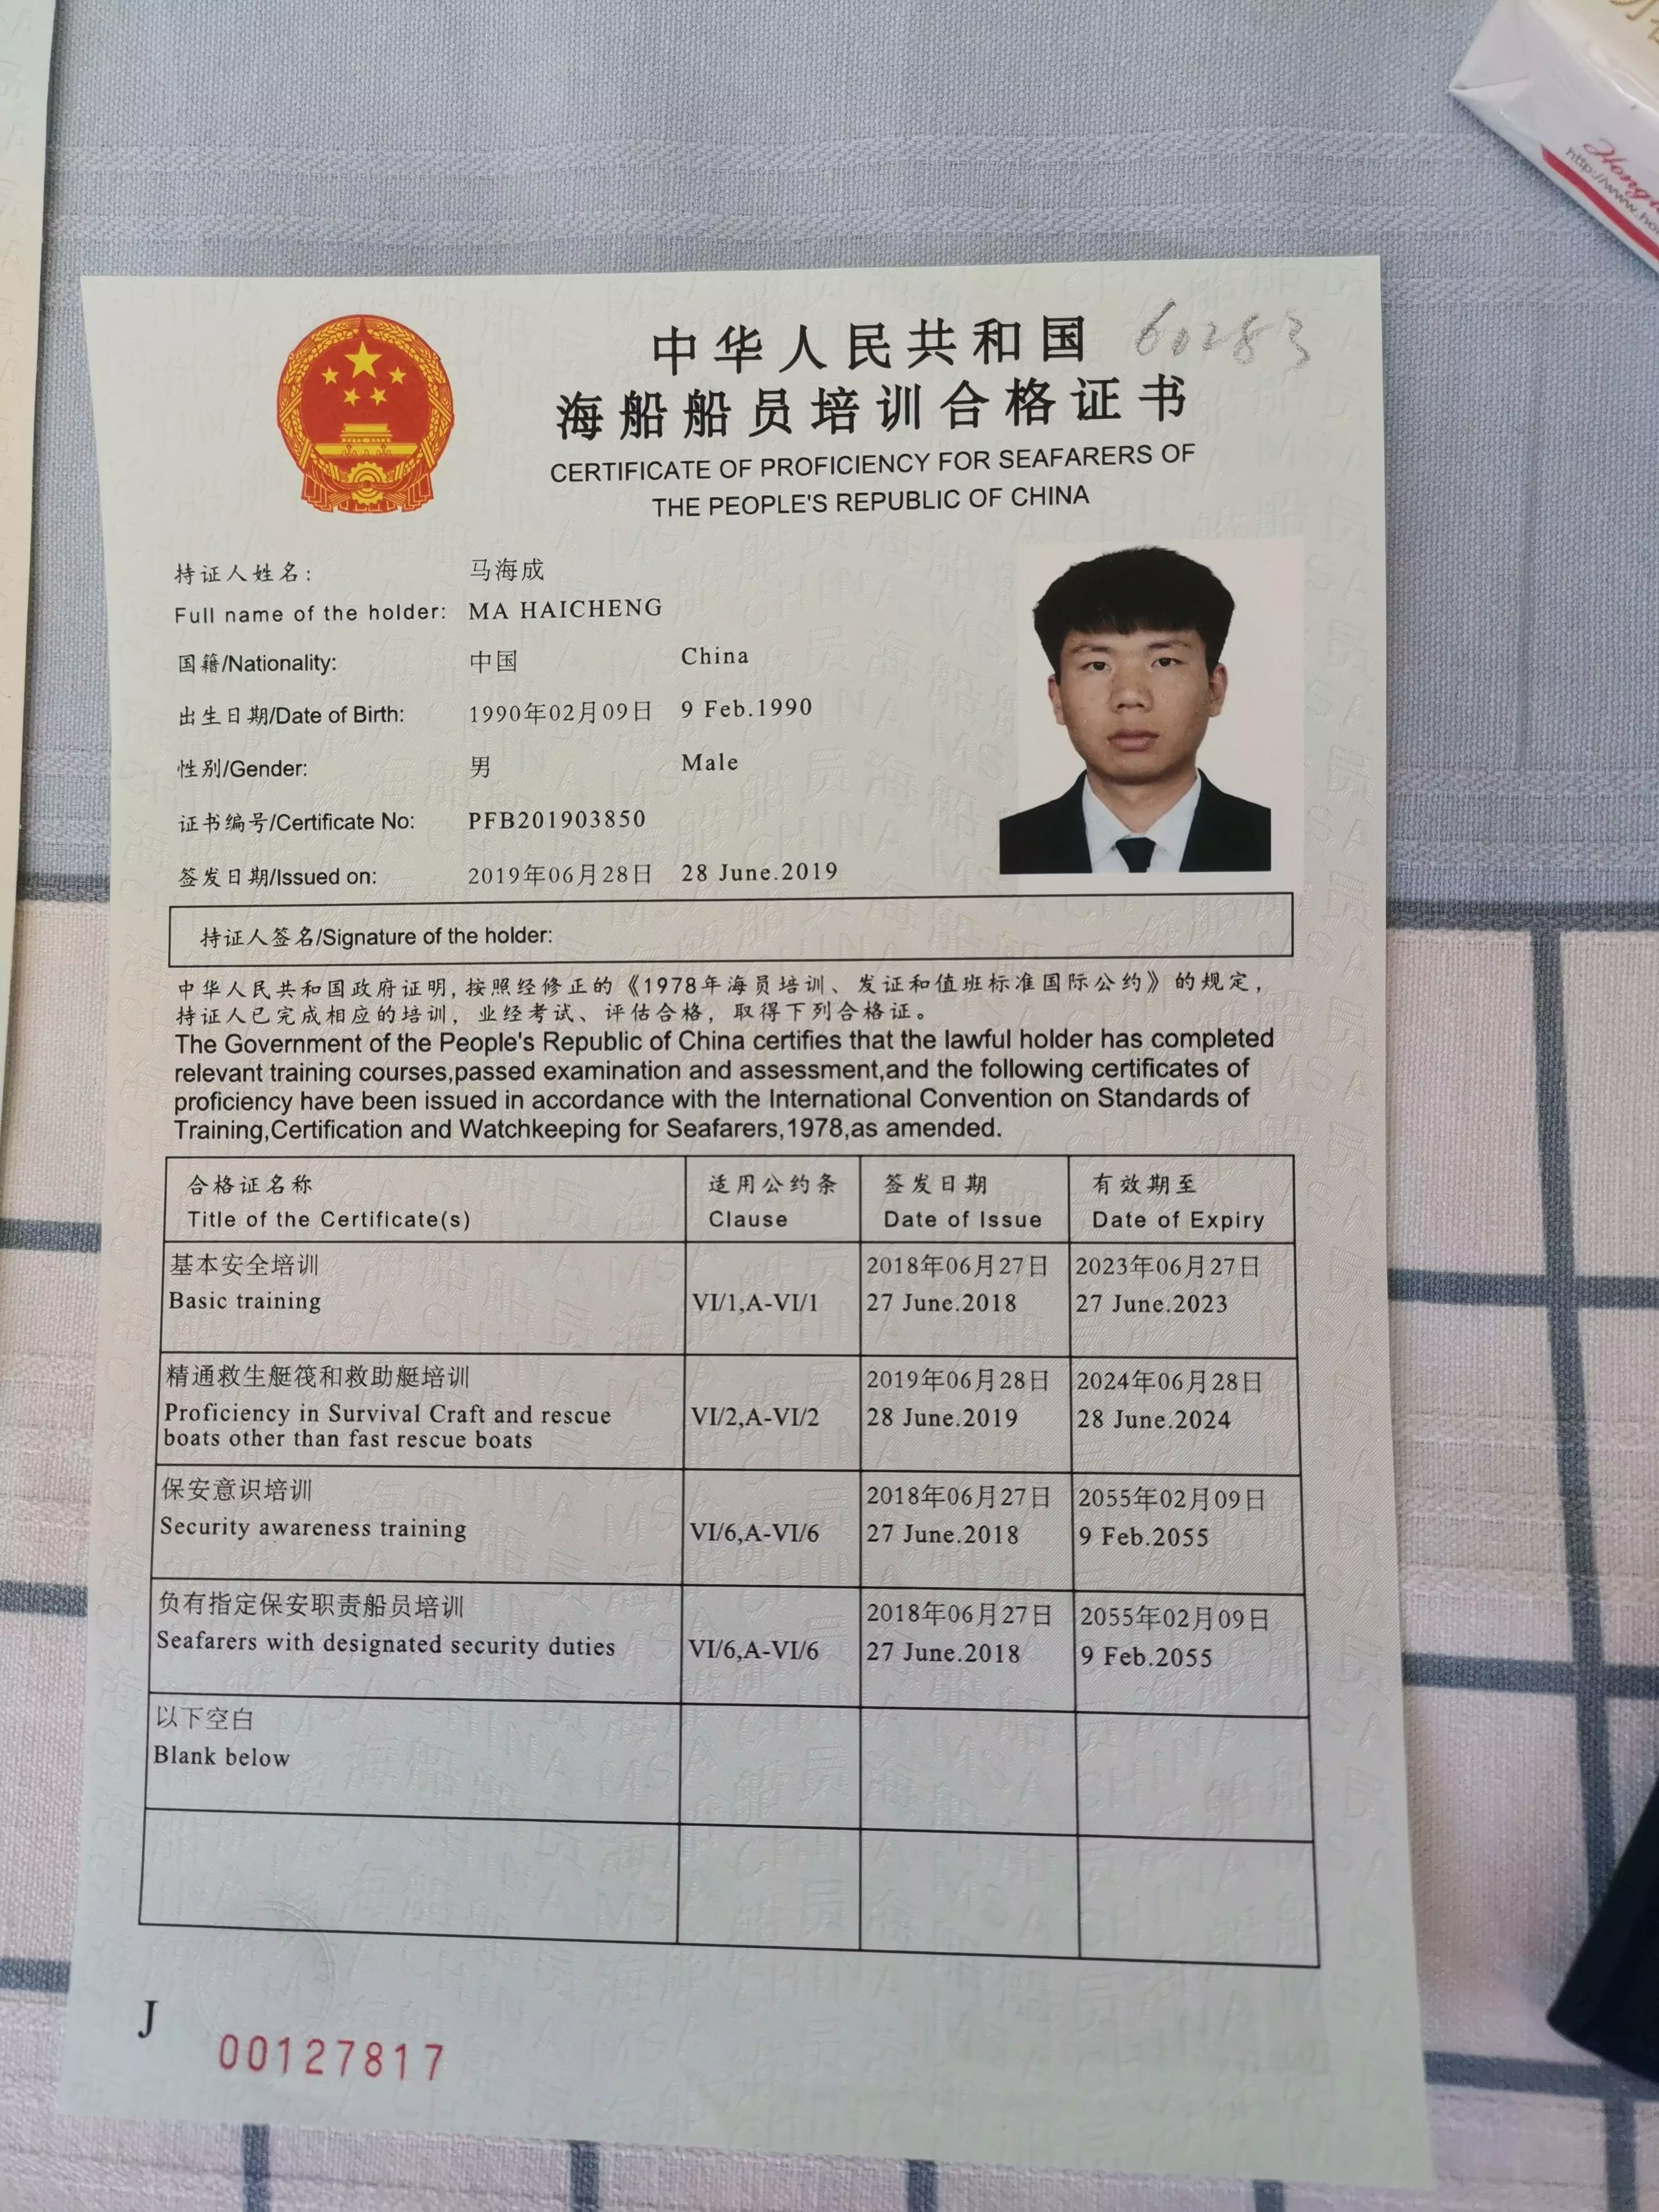 中华人民共和国
60283
海船船员培训合格证书
CERTIFICATE OF PROFICIENCY FOR SEAFARERS OF
THE PEOPLE'S REPUBLIC OF CHINA
持证人姓名: 马海成
Full name of the holder: MA HAICHENG
国籍/Nationality: 中国 China
出生日期/Date of Birth: 1990年02月09日 9 Feb.1990
性别/Gender: 男 Male
证书编号/Certificate No: PFB201903850
签发日期/Issued on: 2019年06月28日 28 June.2019
持证人签名/Signature of the holder:
中华人民共和国政府证明,按照经修正的《1978年海员培训、发证和值班标准国际公约》的规定,
持证人已完成相应的培训，业经考试、评估合格，取得下列合格证。
The Government of the People's Republic of China certifies that the lawful holder has completed
relevant training courses,passed examination and assessment,and the following certificates of
proficiency have been issued in accordance with the International Convention on Standards of
Training,Certification and Watchkeeping for Seafarers,1978,as amended.
合格证名称 适用公约条 签发日期 有效期至
Title of the Certificate(s) Clause Date of Issue Date of Expiry
基本安全培训 2018年06月27日 2023年06月27日
Basic training VI/1,A-VI/1 27 June.2018 27 June.2023
精通救生艇筏和救助艇培训 2019年06月28日 2024年06月28日
Proficiency in Survival Craft and rescue VI/2,A-VI/2 28 June.2019 28 June.2024
boats other than fast rescue boats
保安意识培训 2018年06月27日 2055年02月09日
Security awareness training VI/6,A-VI/6 27 June.2018 9 Feb.2055
负有指定保安职责船员培训 2018年06月27日 2055年02月09日
Seafarers with designated security duties VI/6,A-VI/6 27 June.2018 9 Feb.2055
以下空白
Blank below
J
00127817